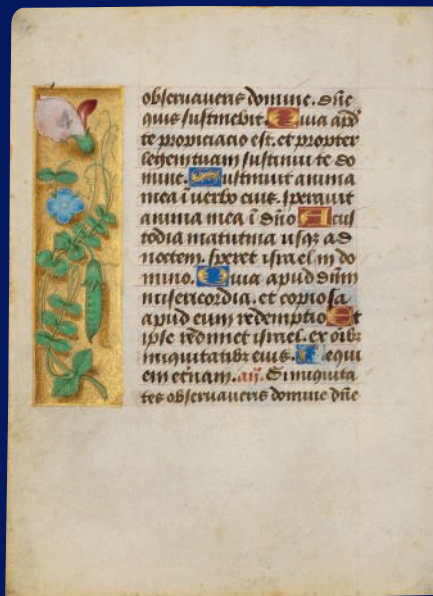 observaveris domine. dñe
quis sustinebit. Quia apđ
te propiciacio est. et propter
legem tuam sustinui te do
mine. Sustinuit anima
mea ĩ verbo eius. speravit
anima mea ĩ dño A cus
todia matutina usqꝫ ad
noctem. speret israel in do
mino. Quia apud dñm
misericordia. et copiosa
apud eum redemptio Et
ipse redimet israel. ex oĩbꝫ
iniquitatibꝫ eius. Requi
em eternam. añ. Si iniquita
tes observaveris domine dñe